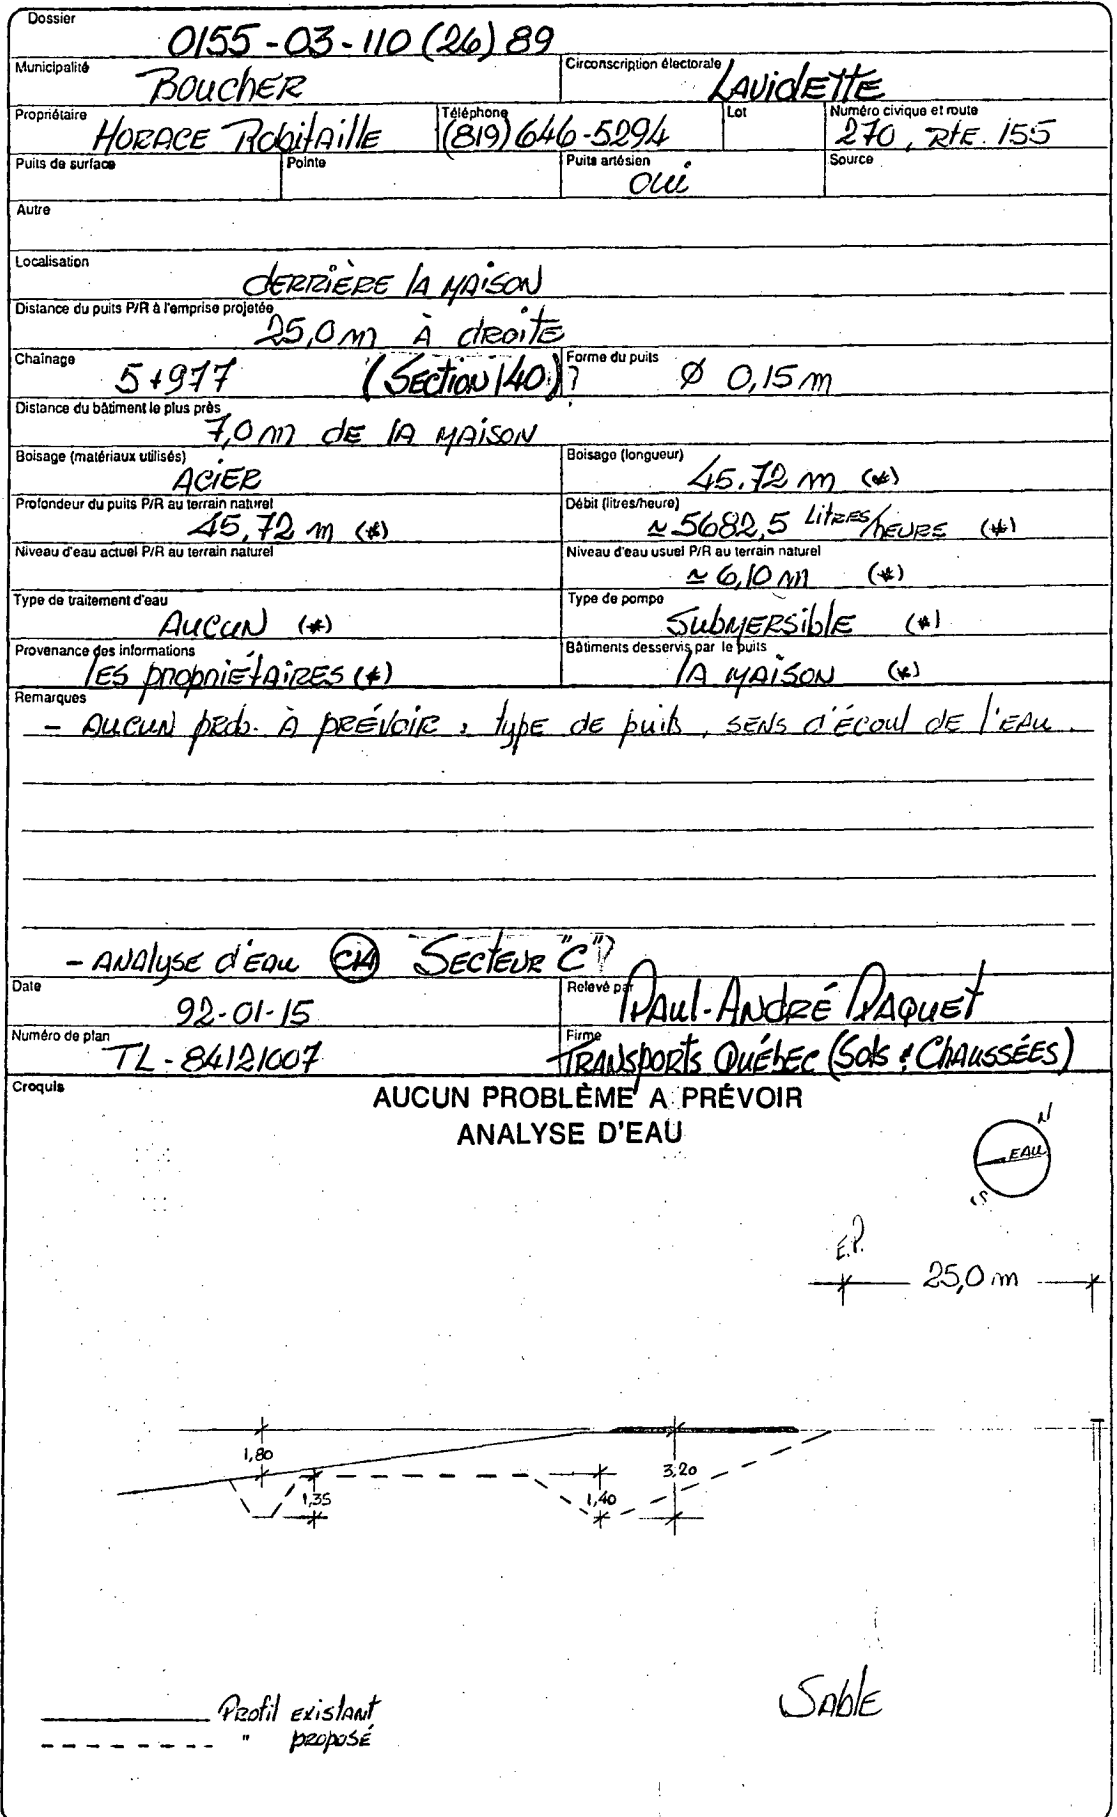 Dossier
0155-03-110 (26) 89
Municipalité Circonscription électorale
Boucher Laviolette
Propriétaire Téléphone Lot Numéro civique et route
Horace Robitaille (819) 646-5294 270, Rte. 155
Puits de surface Pointe Puits artésien Source
oui
Autre
Localisation
derrière la maison
Distance du puits P/R à l'emprise projetée
25,0 m à droite
Chaînage Forme du puits
5+977 (Section 140) ? Ø 0,15 m
Distance du bâtiment le plus près
7,0 m de la maison
Boisage (matériaux utilisés) Boisage (longueur)
Acier 45.72 m (*)
Profondeur du puits P/R au terrain naturel Débit (litres/heure)
45,72 m (*) ≈ 5682,5 Litres/heures (*)
Niveau d'eau actuel P/R au terrain naturel Niveau d'eau usuel P/R au terrain naturel
≃ 6,10 m (*)
Type de traitement d'eau Type de pompe
Aucun (*) Submersible (*)
Provenance des informations Bâtiments desservis par le puits
les propriétaires (*) la maison (*)
Remarques
- Aucun prob. à prévoir : type de puits, sens d'écoul de l'eau.
- Analyse d'eau Secteur "C"?
Date Relevé par
92-01-15 Paul-André Paquet
Numéro de plan Firme
TL-84121007 Transports Québec (Sols & Chaussées)
Croquis
AUCUN PROBLÈME A PRÉVOIR
ANALYSE D'EAU
N
EAU
S
E.P.
25,0 m
1,80
1,35
1,40
3,20
Sable
Profil existant
" proposé